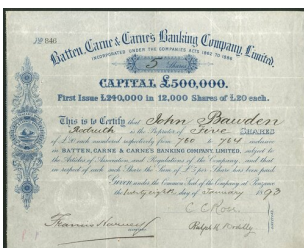 No 846
Batten, Carne & Carne's Banking Company, Limited.
INCORPORATED UNDER THE COMPANIES ACTS 1862 TO 1890
5 Shares
CAPITAL £500,000.
First Issue £240,000 in 12,000 Shares of £20 each.
This is to Certify that John Bawden
Redruth is the Proprietor of Five SHARES
of £20 each numbered respectively from 700 to 704 inclusive
in BATTEN, CARNE & CARNE'S BANKING COMPANY, LIMITED, subject to
the Articles of Association and Regulations of the Company, and that
in respect of each Share the Sum of £ per Share has been paid
GIVEN under the Common Seal of the Company at Penzance
the twenty eighth day of January 1893